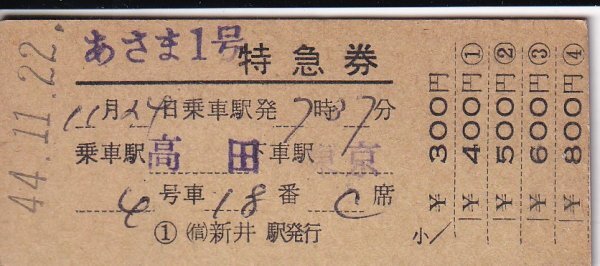 44.11.22.
あさま1号
特急券
11月24日乗車駅発7時37分
乗車駅 高田 下車駅 東京
4号車18番C席
① ㊝新井駅発行
¥300円
¥400円①
¥500円②
¥600円③
¥800円④
小/